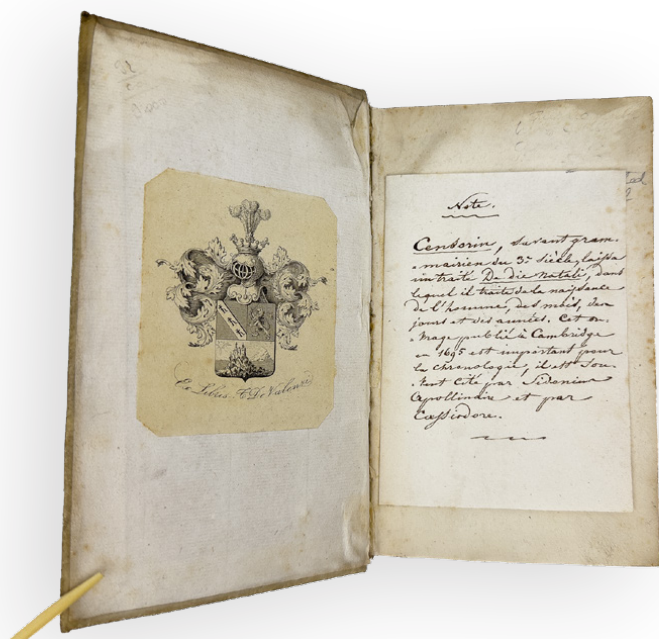 Ex Libris
Note.
Censorin, savant gram-
-mairien du 3e siècle, laissa
un traité De die Natali, dans
lequel il traite de la naissance
de l'homme, des mois, des
jours et des années. Cet ou-
-vrage publié à Cambridge
en 1695 est important pour
la chronologie, il est sou-
-vent cité par Sidonius
Apollinaire et par
Cassiodore.